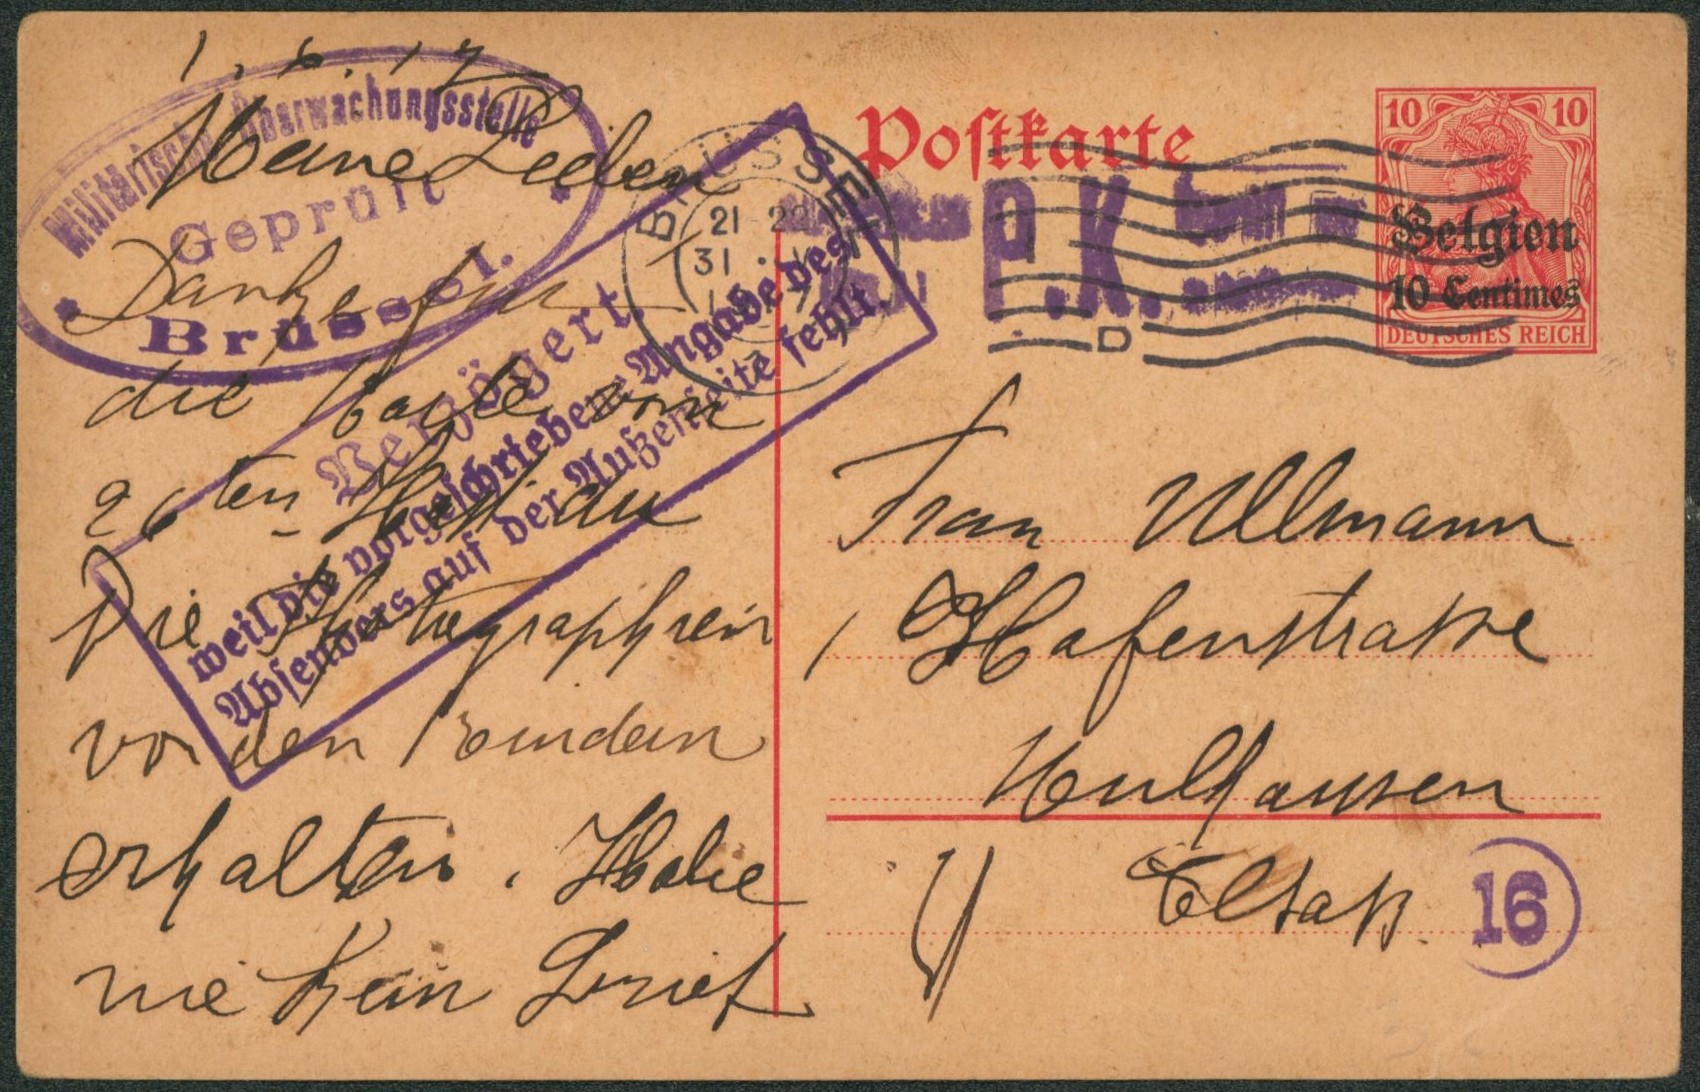 1. 6. 17
Meine Lieben
Danke für
die Karte vom
26ten Hast du
Die Photographien
von den Kindern
erhalten. Habe
nie kein Brief
Militärische Überwachungsstelle
Geprüft
Brüssel.
Verzögert.
weil die vorgeschriebene Angabe des
Absenders auf der Außenseite fehlt.
BRÜSSEL
21-22
31
Postkarte
P.K.
D
10 10
Belgien
10 Centimes
DEUTSCHES REICH
Frau Ullmann
Hafenstrasse
Mulhausen
Elsaß.
16